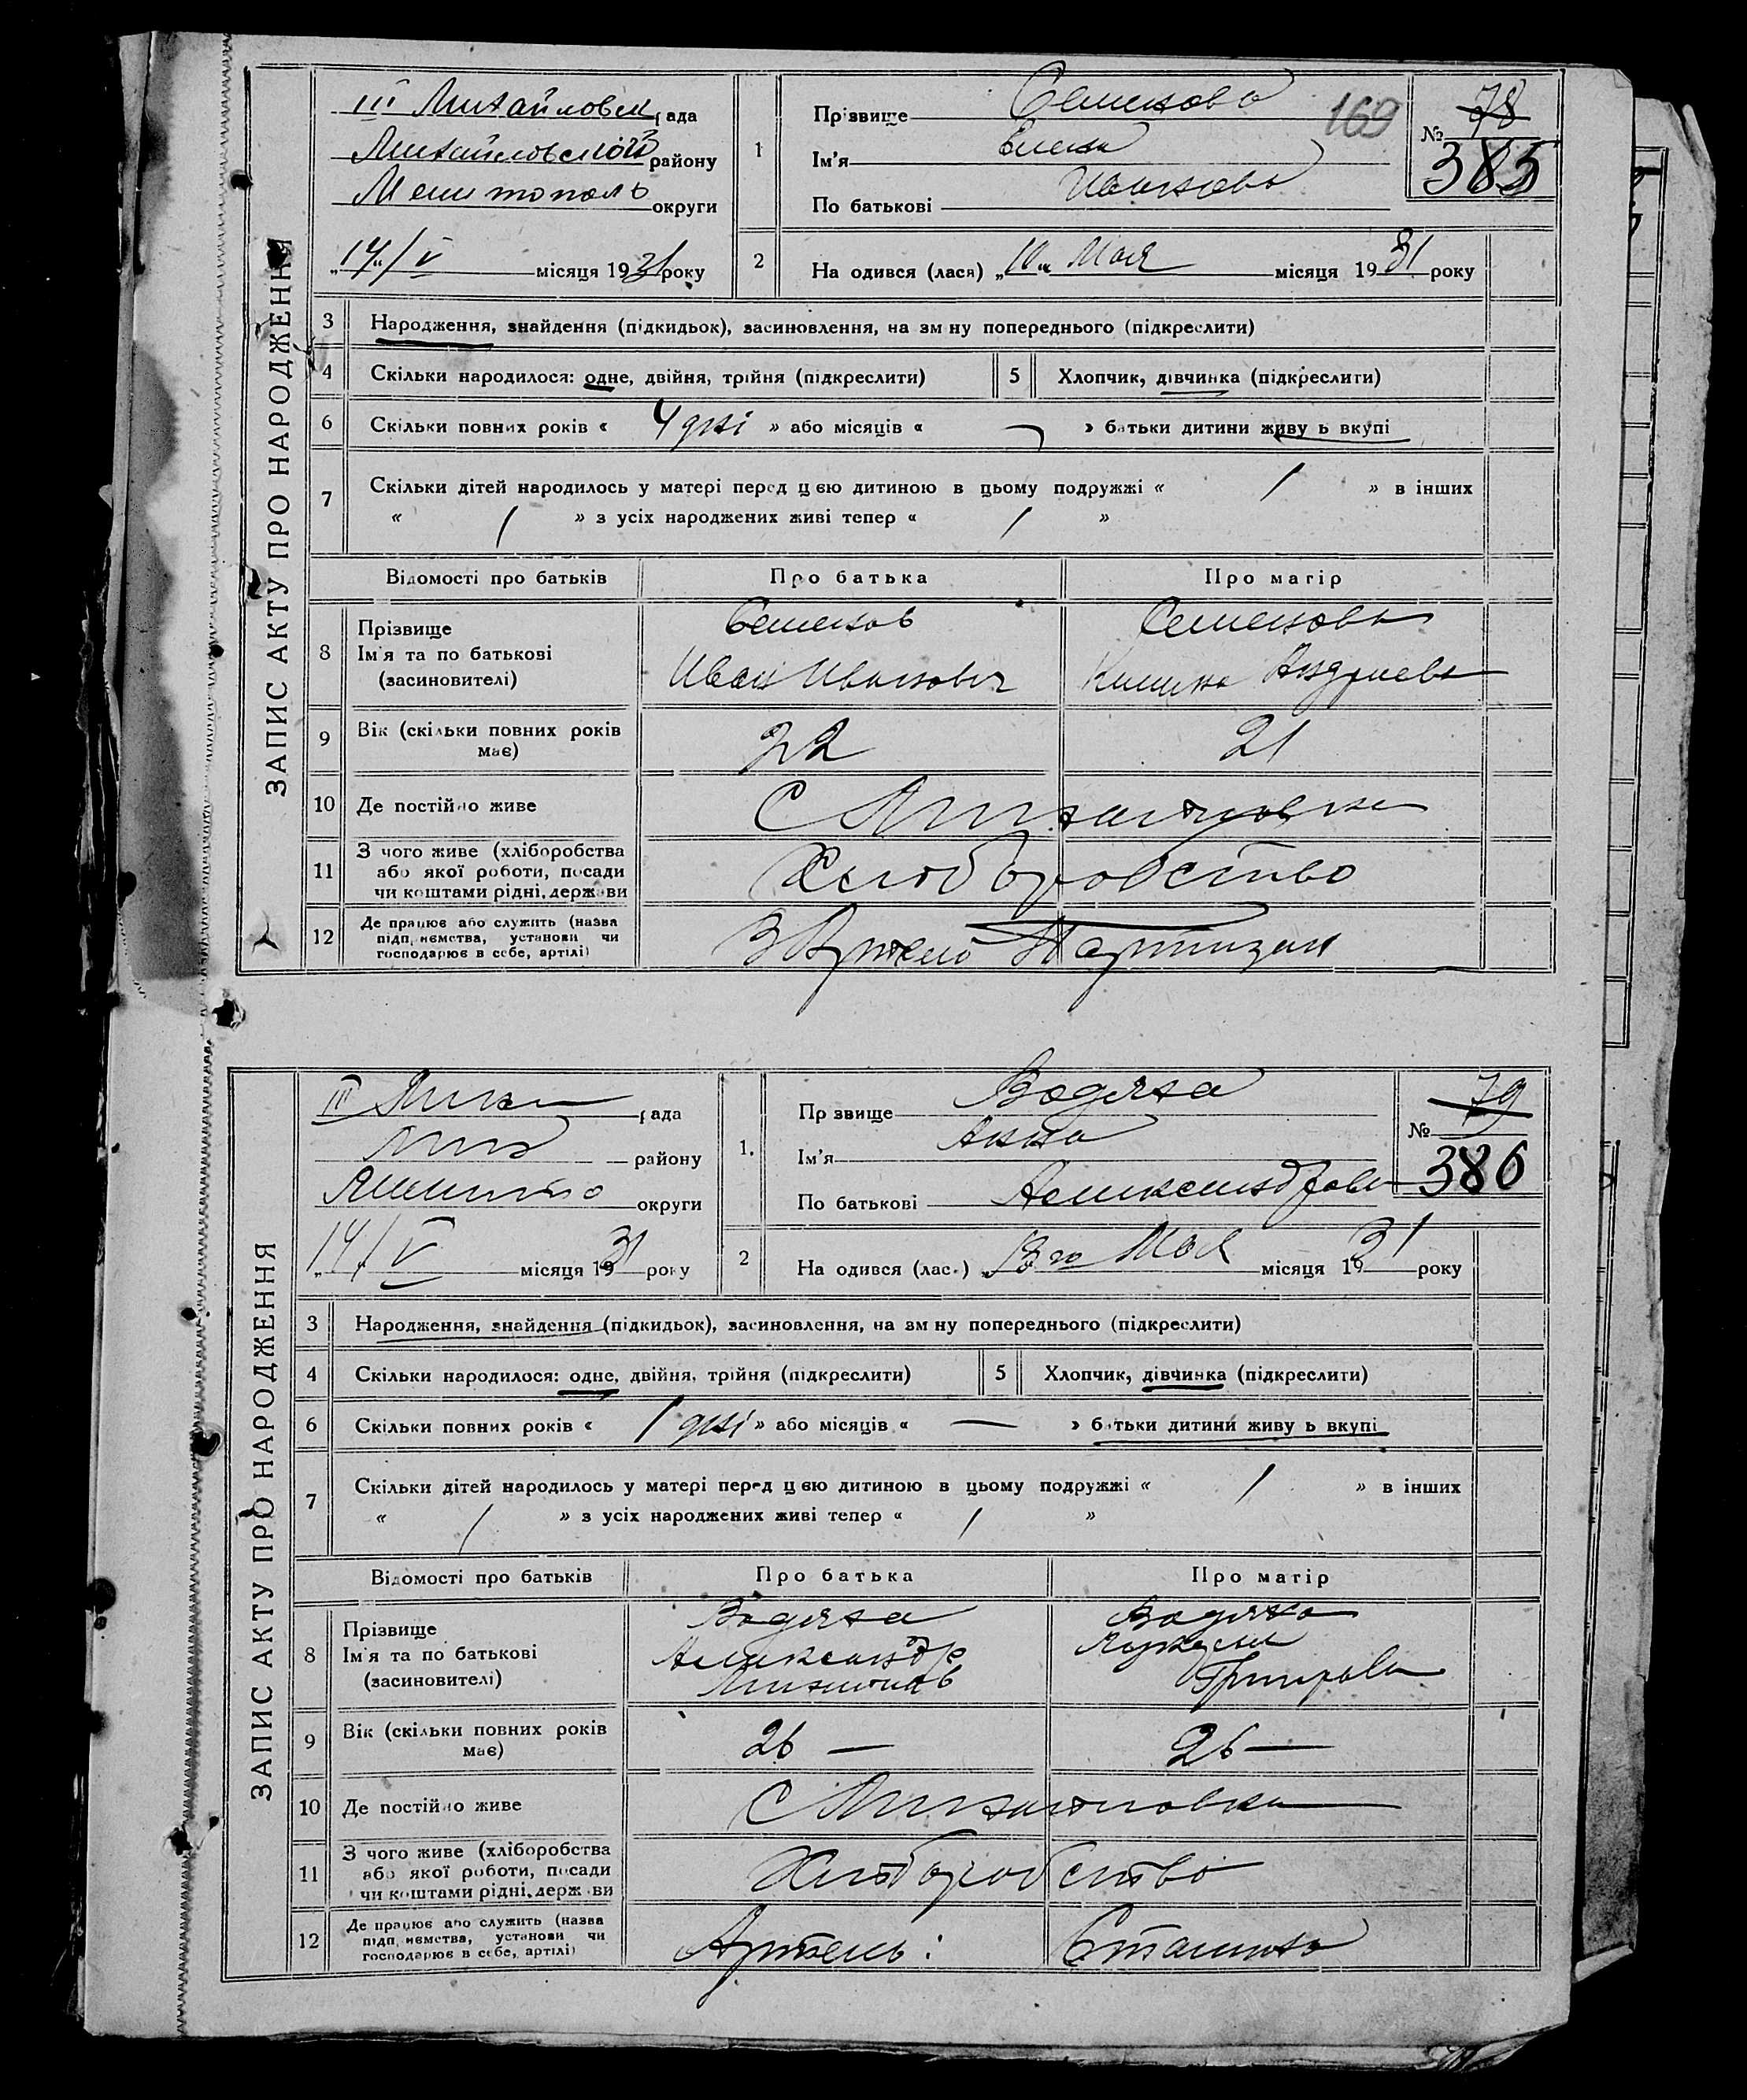 ЗАПИС АКТУ ПРО НАРОДЖЕННЯ
III Михайловск рада
Михайловской району
Мелитополь округи
„14“/V місяця 1931 року
1
Прізвище Семенова
169
Ім'я Елена
По батькові Ивановна
№ 78
385
2
На одився (лася) „10“ Мая місяця 1931 року
3 Народження, знайдення (підкидьок), засиновлення, на зм ну попереднього (підкреслити)
4 Скільки народилося: одне, двійня, трійня (підкреслити)
5 Хлопчик, дівчинка (підкреслити)
6 Скільки повних років « 4 дні » або місяців « — » батьки дитини живу ь вкупі
7 Скільки дітей народилось у матері перед цією дитиною в цьому подружжі « / » в інших
« / » з усіх народжених живі тепер « / »
Відомості про батьків Про батька Про матір
8 Прізвище
Ім'я та по батькові
(засиновителі)
Семенов
Иван Иванович
Семенова
Андриевн
9 Вік (скільки повних років має)
22 21
10 Де постійно живе
С Михайловка
11 З чого живе (хліборобства
або якої роботи, посади
чи коштами рідні, держави
Хліборобство
12 Де працює або служить (назва
підп, иємства, установи чи
господарює в себе, артілі)
Партизан
ЗАПИС АКТУ ПРО НАРОДЖЕННЯ
III Мих рада
Мих району
Мелито округи
„14“/V місяця 1931 року
1.
Пр звище Водяха
Ім'я Анна
По батькові Александров
№ 79
386
2
На одився (лас.) Мая місяця 1931 року
3 Народження, знайдення (підкидьок), засиновлення, на зм ну попереднього (підкреслити)
4 Скільки народилося: одне, двійня, трійня (підкреслити)
5 Хлопчик, дівчинка (підкреслити)
6 Скільки повних років « 1 дні » або місяців « — » батьки дитини живу ь вкупі
7 Скільки дітей народилось у матері перед цією дитиною в цьому подружжі « / » в інших
« / » з усіх народжених живі тепер « / »
Відомості про батьків Про батька Про матір
8 Прізвище
Ім'я та по батькові
(засиновителі)
Водяха
Александр
Водяха
9 Вік (скільки повних років має)
26 — 26 —
10 Де постійно живе
С Михайловка
11 З чого живе (хліборобства
або якої роботи, посади
чи коштами рідні, держ ви
Хліборобство
12 Де працює або служить (назва
підп, иємства, установи чи
господарює в себе, артілі)
Артель: Сталина